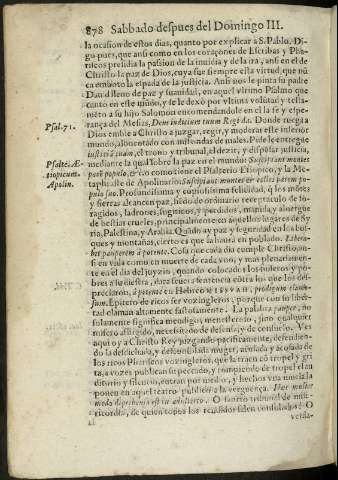 878 Sabbado despues del Domingo III.
la ocasion de estos dias, quanto por explicar à S. Pablo. Di-
go pues, que ansi como en los coraçones de Escribas y Pha-
riseos presidia la passion de la inuidia y de la ira, ansi en el de
Christo la paz de Dios, cuya fue siempre esta virtud, que nũ
ca embotò la espada de la justicia. Ansi nos le pinta su padre
Dauid lleno de paz y suauidad, en aquel vltimo Psalmo que
cantò en este mũdo, y se le dexò por vltima voluntad y testa-
mẽto a su hijo Salomon encomendandole en el la fe y espe-
rança del Mesias, Deus iudicium tuum Regi da. Donde ruega a
Psal. 71.
Dios embie a Christo a juzgar, regir, y moderar este inferior
mundo, alborotado con mil ondas de males. Pide le entregue
iustitiã suam, el trono y tribunal, el dezir, y disponer justicia,
Psalte. Æ-
tiopicum.
Apolin.
mediante la qual sobre la paz en el mundo: Suscipiant montes
pacẽ populo, & ò como tiene el Psalterio Etiopico, y la Me-
taphraste de Apolinario: Suscipiant montes & colles pacem po-
pulo suo. Profundissima y copiosissima felicidad, q̃ los mõtes
y sierras alcancen paz, siẽdo de ordinario receptaculo de fo-
ragidos, ladrones, fugitiuos, y perdidos, manida y aluergue
de bestias crueles, principalmente en aquellos lugares de Sy-
ria, Palestina, y Arabia. Quãdo ay paz y seguridad en los bos-
ques y montañas, cierto es que la haurà en poblado. Libera-
bit pauperem à potente. Cosa que cada dia cumple Christo, an-
si en vida como en muerte de cada vno, y mas plenariamen-
te en el dia del juyzio, quando colocados los buenos y po-
bres a su diestra, darà seuera sentencia contra los que los des-
preciaron, à potente
sum. Epiteto de ricos ser vozingleros, porque con su liber-
tad claman altamente fastosamente. La palabra pauper, no
solamente significa mendigo, menesteroso, sino qualquier
misero afligido, necessitado de defensa, y de consuelo. Ves
aqui oy a Christo Rey juzgando pacificamente, defendien-
do la desdichada, y desconsolada muger, acusada y acosada de
los ricos Phariseos vozingleros, que la traen cõ tropel y gri-
ta, a vozes publican su peccado, y rompiendo el tropel el au-
ditorio y silencio, entran por medio, y hechos vna muela la
ponen en aquel teatro publico a la verguença. Hæc mulier
modo deprehensa est in adulterio. O santo tribunal de mise-
ricordia, de quien todos los acusados salen consolados! O
verda-